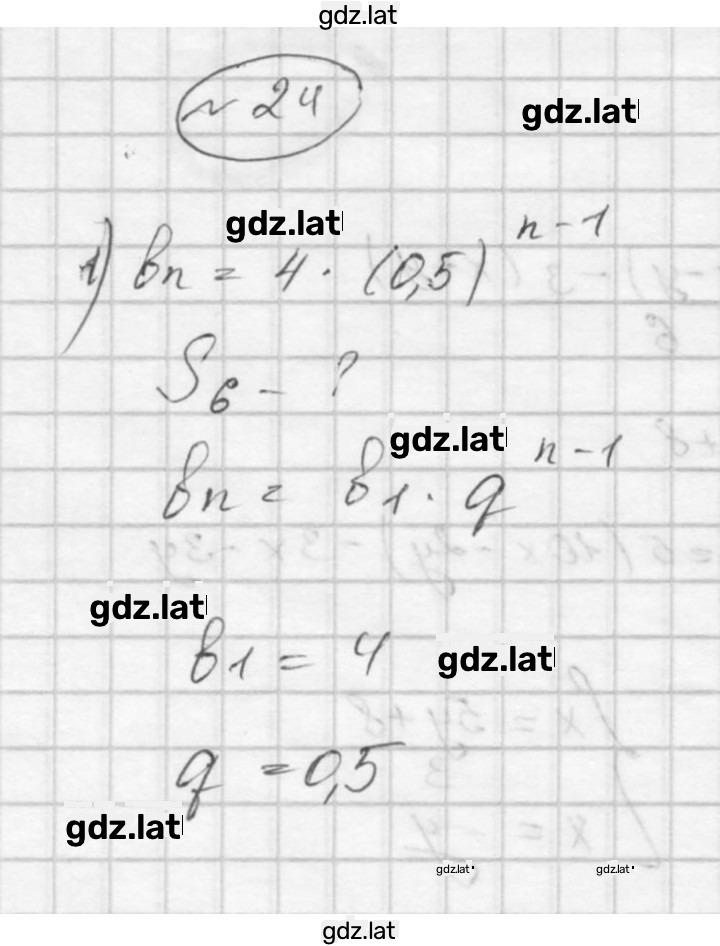 gdz.lat
№ 24
gdz.lat
gdz.lat
1) bn = 4 · (0,5)^n-1
S6 - ?
gdz.lat
bn = b1 · q^n-1
gdz.lat
b1 = 4
gdz.lat
q = 0,5
gdz.lat
gdz.lat
gdz.lat
gdz.lat